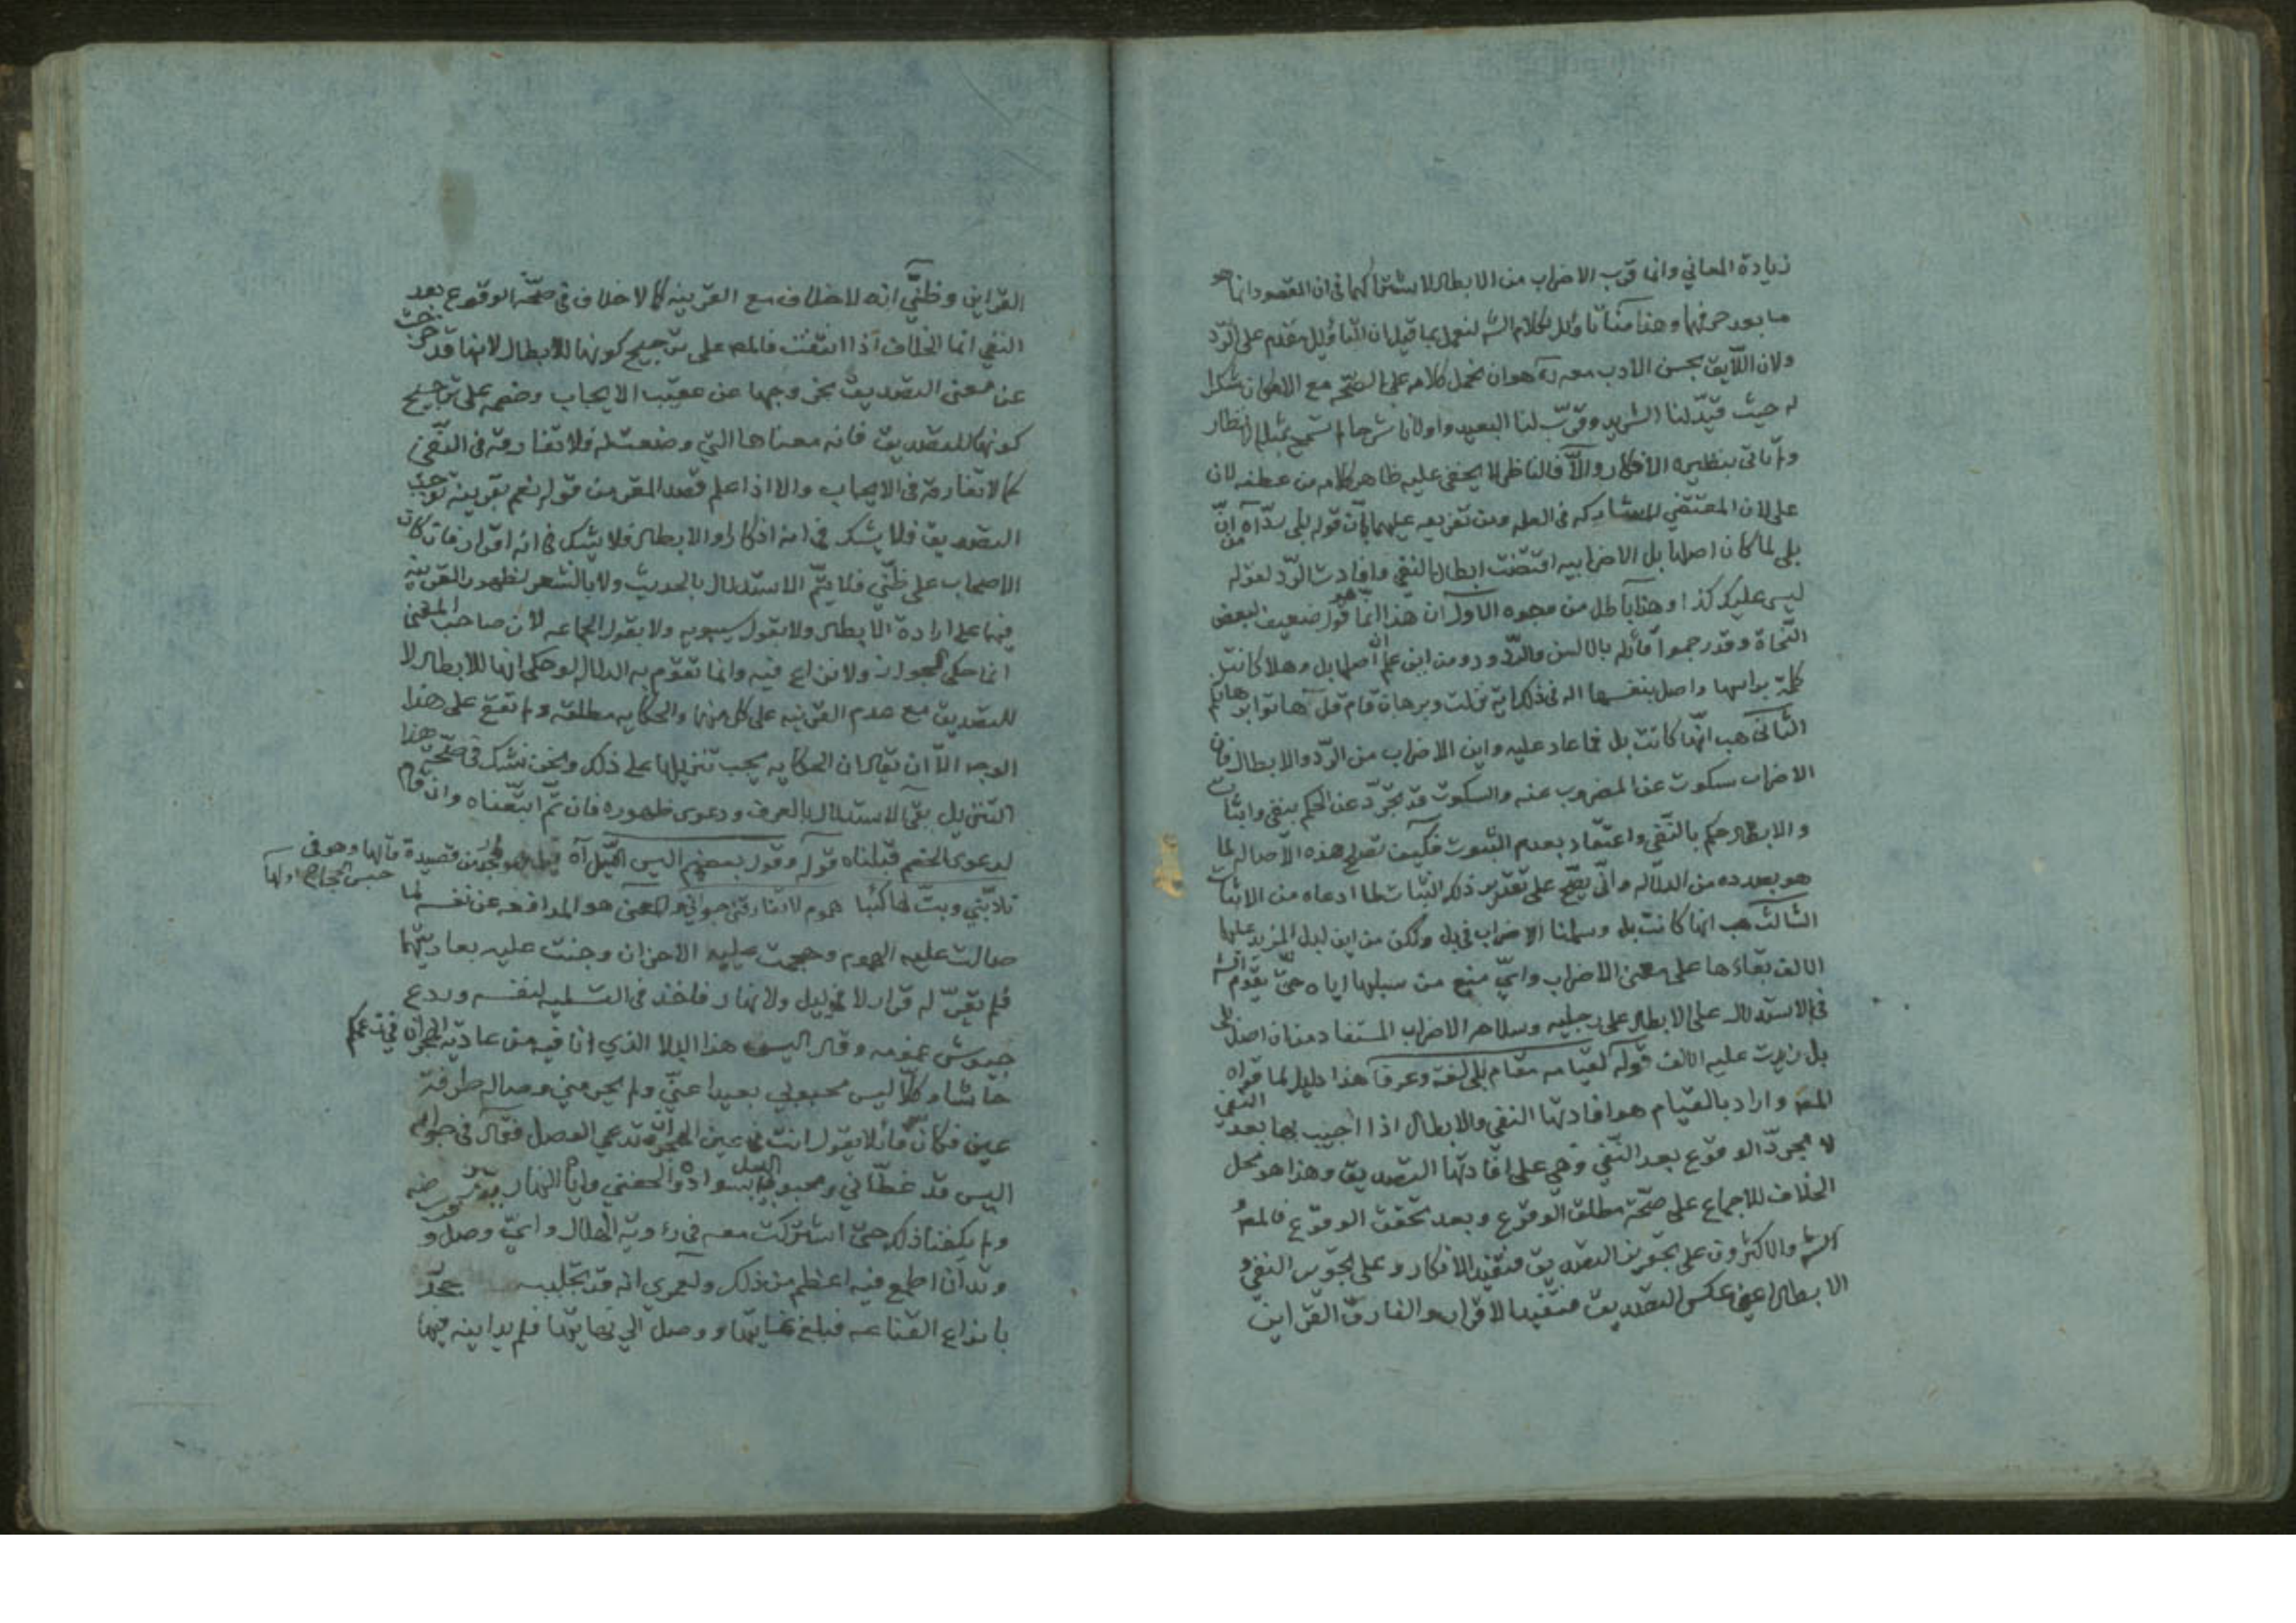 زيادة المعاني وانما قرب الاضراب من الابطال لاشتراكهما في ان المقصود انما هو
ما بعد حرفهما وهذا منا تاويل لكلام الش لنعمل بما قيل ان التاويل مقدم على الرد
ولان اللايق بحسن الادب معه ره هو ان نحمل كلامه على الصحة مع الامكان شكرا
له حيث قيد لنا الشريد وقرب لنا البعيد واولانا شرحا لم تسمح بمثله الانظار
ولم تاتي بنظيره الافكار والا فالناظر لا يخفى عليه ظاهر كلامه من عطفه لان
على لان المقتضي للمشاركه في العله ومن تفريعه عليهما بان قوله بلى رد آه من ان
بلى لما كان اصلها بل الاضرابيه اقتضت ابطال النفي وافادت الرد لقوله
ليس عليك كذا وهذا باطل من وجوه الاول ان هذا انما هو قول ضعيف لبعض
النحاة وقد رجموا قائله بالالسن والرد ومن اين علم ان اصلها بل وهلا كانت
كلمة براسها واصل بنفسها اله في ذلك اية نزلت وبرهان قام قل هاتوا برهانكم
الثاني هب انها كانت بل فما عاد عليه واين الاضراب من الرد والابطال فان
الاضراب سكوت عن المضروب عنه والسكوت قد تجرد عن الحكم بنفي واثبات
والابطال حكم بالنفي واعتقاد بعدم الثبوت فكيف تصلح هذه الاصاله لما
هو بصدده من الدلاله واني يصح على تقدير ذلك اثبات لما ادعاه من الاثبات
الثالث هب انها كانت بل وسلمنا الاضراب في بل ولكن من اين لبل المزيد عليها
الالف بقاءها على معنى الاضراب واي منع من سلبها اياه حتى يقوم الش
في الاستدلال على الابطال على رجليه وسلاحه الاضراب المستفاد من ان اصل بلى
بل زيدت عليه الالف قوله لقيامه مقام بلى لغة وعرفا هذا دليل لما قواه
المص واراد بالقيام هو افادتها النفي والابطال اذا اجيب بها بعد النفي
لا مجرد الوقوع بعد النفي وهي على افادتها التصديق وهذا هو محل
الخلاف للاجماع على صحة مطلق الوقوع وبعد تحقق الوقوع فالمص
الش والاكثرون على تجويز التصديق فتفيد الانكار وعلى تجويز النفي و
الابطال اعني عكس التصديق فتفيد الاقرار والفارق القراين
القراين وظني انه لا خلاف مع القرينه كما لا خلاف في صحة الوقوع بعد
النفي انما الخلاف اذا انتفت فالمص على ترجيح كونها للابطال لانها قد خرجت
عن معنى التصديق بخروجها عن عقيب الايجاب وخصمه على ترجيح
كونها للتصديق فانه معناها التي وضعت له فلا تفارقه في النفي
كما لا تفارقه في الايجاب والا اذا علم قصد المقر من قوله نعم بقرينه توجب
التصديق فلا يشك في انه انكار او الابطال فلا يشك في انه اقرار فان كان
الاصحاب على ظني فلا يتم الاستدلال بالحديث ولا بالشعر لظهور القرينه
فيها على ارادة الابطال ولا بقول سيبويه ولا بقول الجماعه لان صاحب المغني
انما حكى الجواز ولا نزاع فيه وانما تقوم به الدلاله لو حكى انها للابطال لا
للتصديق مع عدم القرينه على كل منهما والحكايه مطلقه ولم تقع على هذا
الوجه الا ان يقال ان الحكايه يجب تنزيلها على ذلك ونحن نشك في صحة هذا
التنزيل بقي الاستدلال بالعرف ودعوى ظهوره فان تم اتبعناه وان قام
لدعوى الخصم قبلناه قوله وقول بعضهم اليس الليل آه قيل هو لجحدر من قصيدة قالها وهو في
حبس الحجاج اولها
تأوبني وبت لها كئيبا هموم لا تفارقني حواني والمعنى هو المدافعه عن نفسه لما
صالت عليه الهموم وهجمت عليه الاحزان وجنت عليه بعاديتها
فلم يقر له قرار لا في ليل ولا نهار فاخذ في التسليه لنفسه وردع
جيوش غمومه وقال اليس هذا البلا الذي انا فيه من عادية الهجران في زعمكم
حاشا وكلا ليس محبوبي بعيدا عني ولم يحرمني وصاله طرفة
عين فكان قائلا يقول انت في عين الهجر تدعي الوصل فقال في جوابه
اليس قد غطاني ومحبوبي الليل بسواده والحفني واياه النهار
ولم يكفنا ذلك حتى اشتركت معه في رؤية الهلال واي وصل و
وتدان اطمع فيه اعظم من ذلك ولعمري انه قد تجلبب
بانواع القناعه فبلغ غايتها ووصل الى نهايتها فلم يدانيه فيها